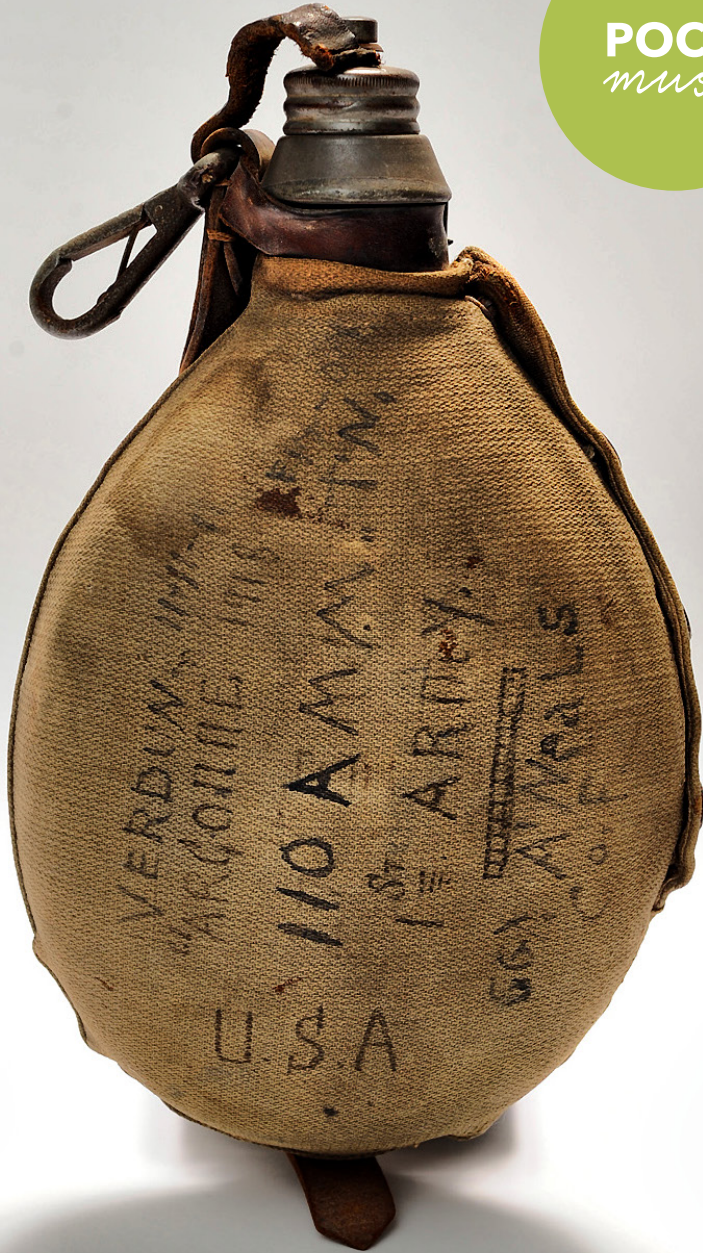 POC
mus
VERDUN
"ARGONNE 1918
110 AMM. TN.
1ST ARMY.
A Neals
Co. F
U.S.A